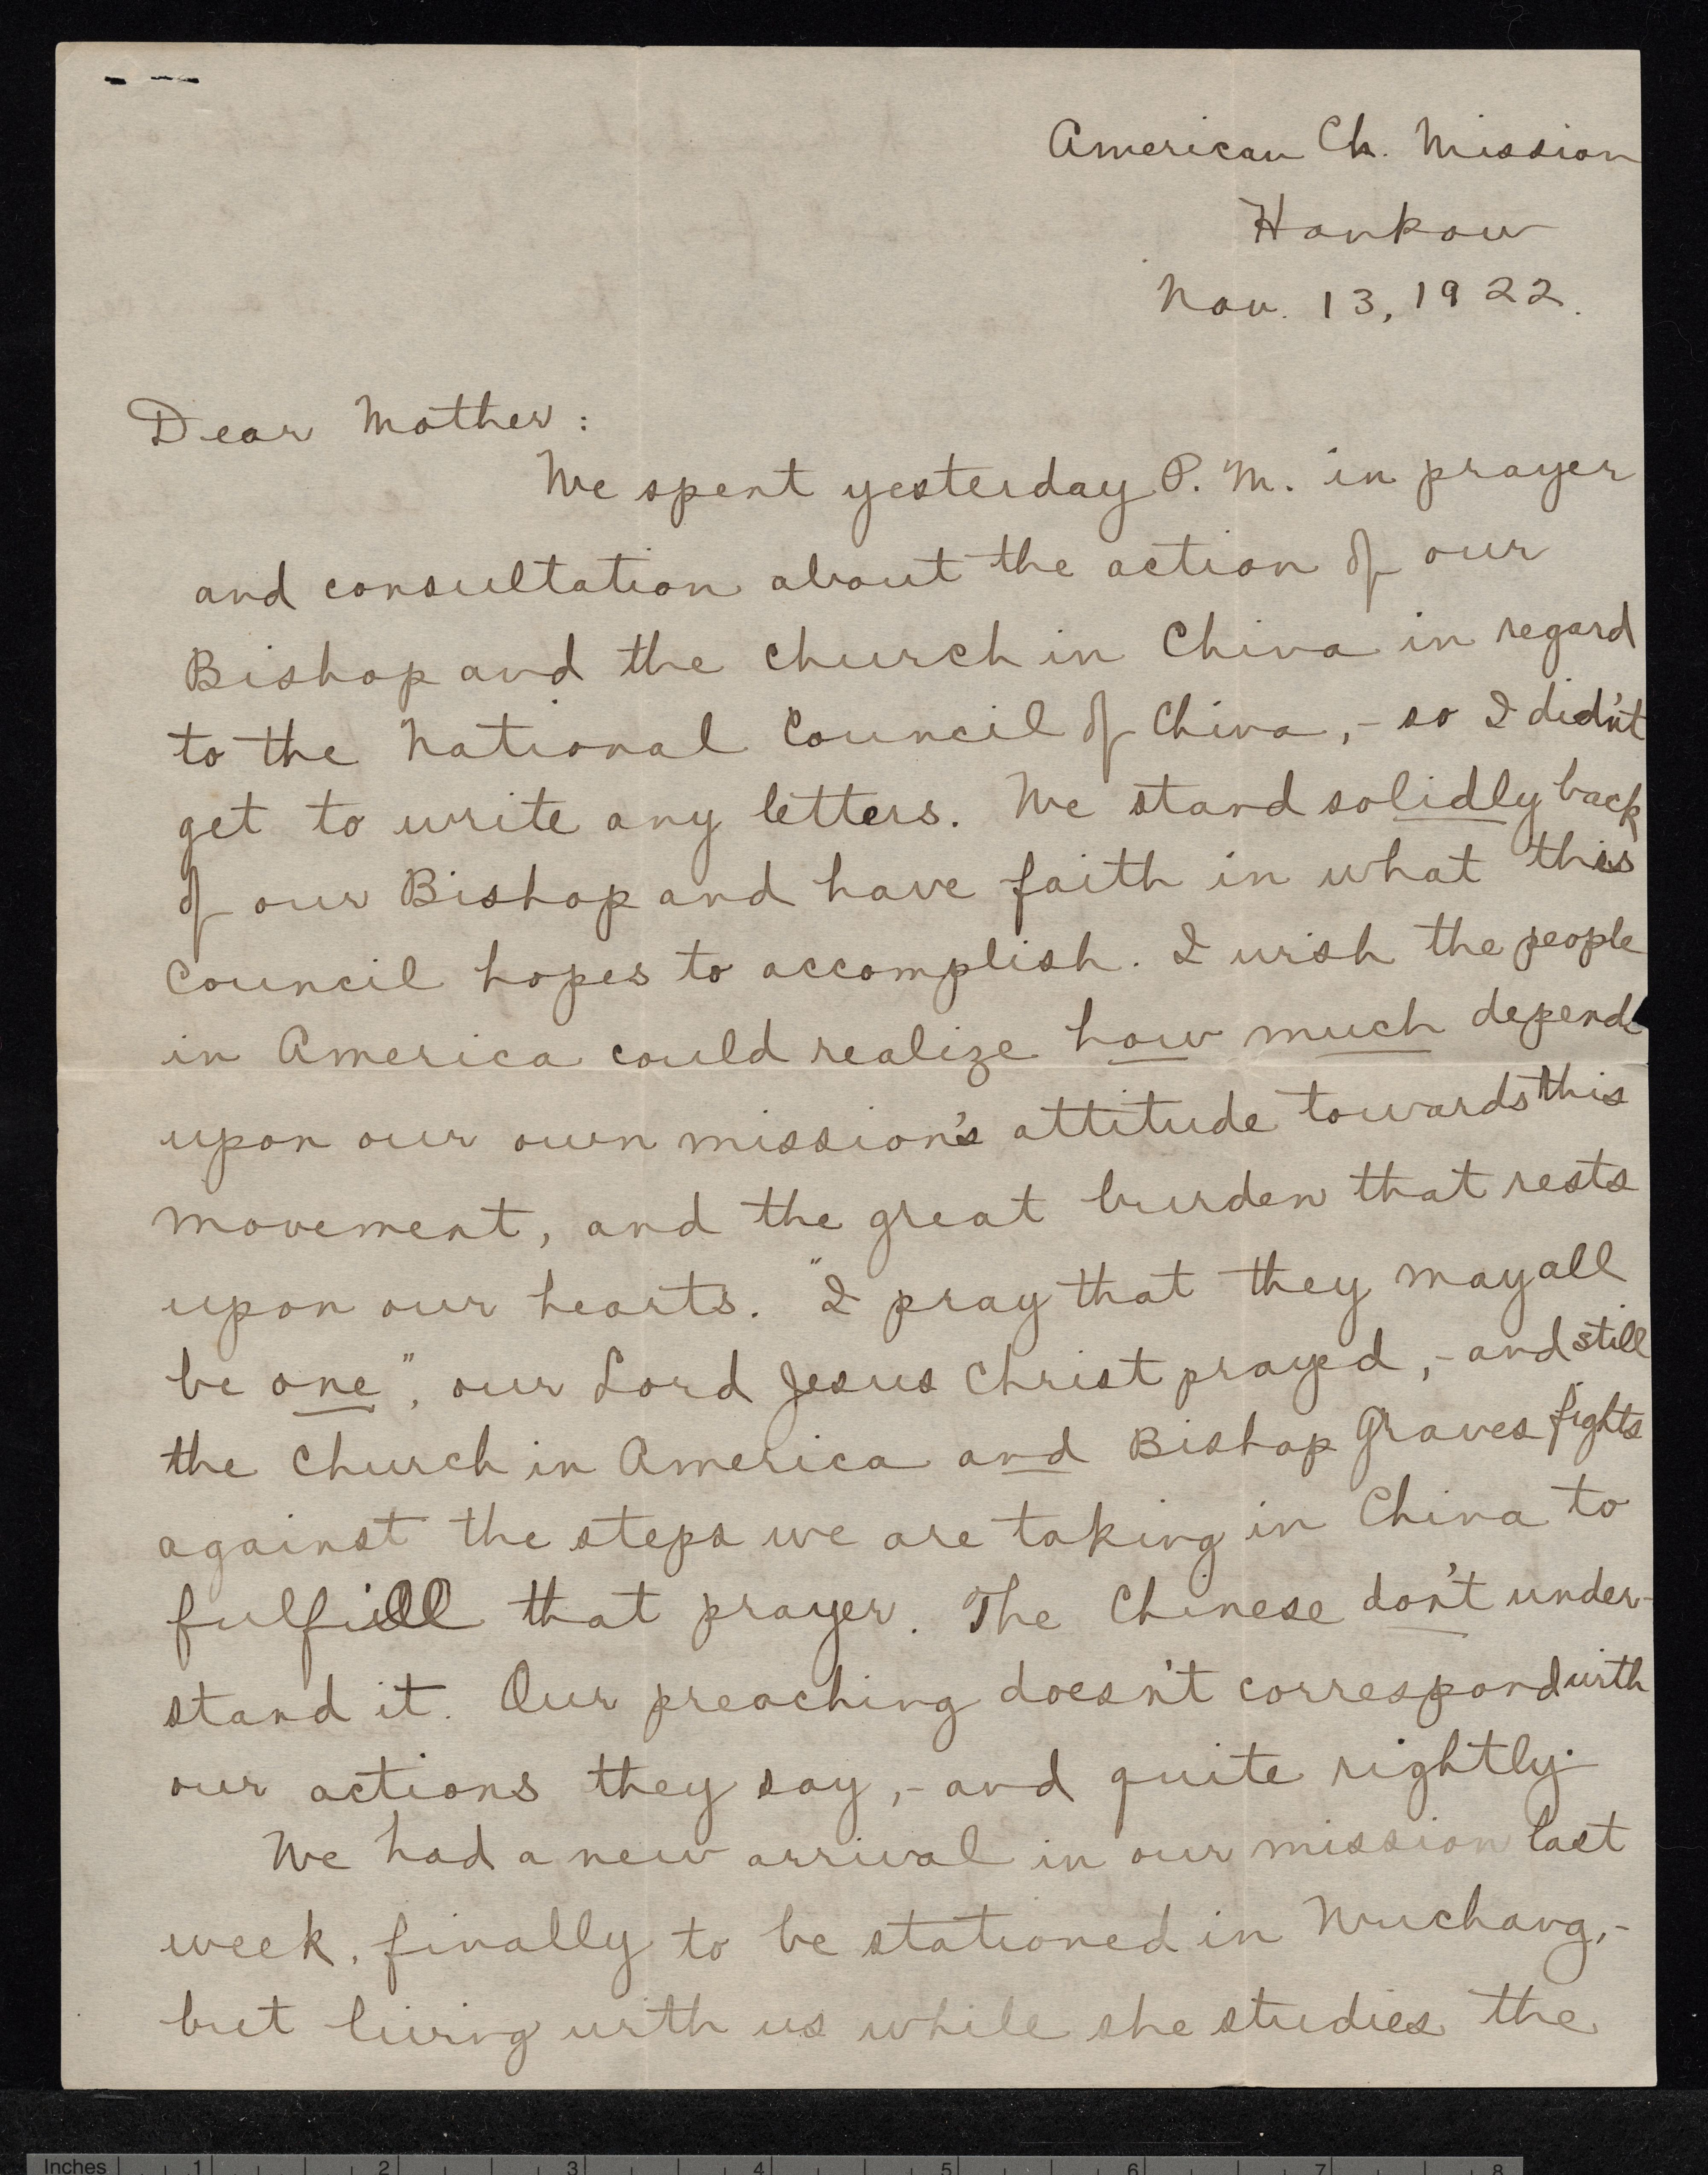 American Ch. Mission
Hankow
Nov. 13, 1922.
Dear Mother:
We spent yesterday P. M. in prayer
and consultation about the action of our
Bishop and the church in China in regard
to the National Council of China, - so I didn't
get to write any letters. We stand solidly back
of our Bishop and have faith in what this
Council hopes to accomplish. I wish the people
in America could realize how much depends
upon our own mission's attitude towards this
movement, and the great burden that rests
upon our hearts. "I pray that they may all
be one", our Lord Jesus Christ prayed, - and still
the Church in America and Bishop Graves fights
against the steps we are taking in China to
fulfill that prayer. The Chinese don't under-
stand it. Our preaching doesn't correspond with
our actions they say, - and quite rightly.
We had a new arrival in our mission last
week, finally to be stationed in Wuchang, -
but living with us while she studies the
Inches 1 2 3 4 5 6 7 8